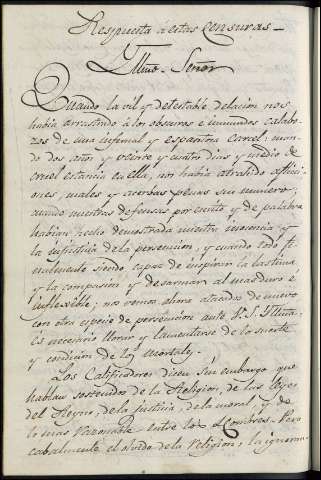 Respuesta a estas Censuras –
Yllmo. Señor
Quando la vil y detestable delacion nos
habia arrastrado à los obscuros e inmundos calabo-
zos de una infernal y espantosa carcel: quan-
do dos años y veinte y cuatro dias y medio de
cruel estancia en ella, nos habia atrahido aflicci-
ones, males y acerbas penas sin numero;
quando nuestras defensas por escrito y de palabra
habian hecho demostrada nuestra inocencia y
la injusticia de la persecucion; y cuando todo fi-
nalmente siendo capaz de inspirar la lastima
y la compasion y desarmar al mas duro é
inflexible; nos vemos ahora atacados de nuevo
con otra especie de persecucion ante V. S. Yllma.
Es necesario llorar y lamentarse de la suerte
y condicion de los mortales.
Los Calificadores dicen sin embargo que
hablan sostenidos de la Religion, de las leyes
del Reyno, de la justicia, de la moral, y de
lo mas razonable entre los hombres. Pero
cabalmente el olvido de la religion, la ignoran-